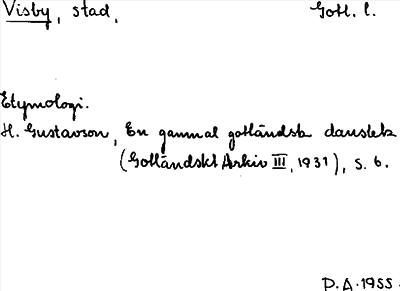 Visby, stad, Gotl. l.
Etymologi.
H. Gustavson, En gammal gotländsk danslek
(Gotländskt Arkiv III, 1931), s. 6.
P.A. 1955.